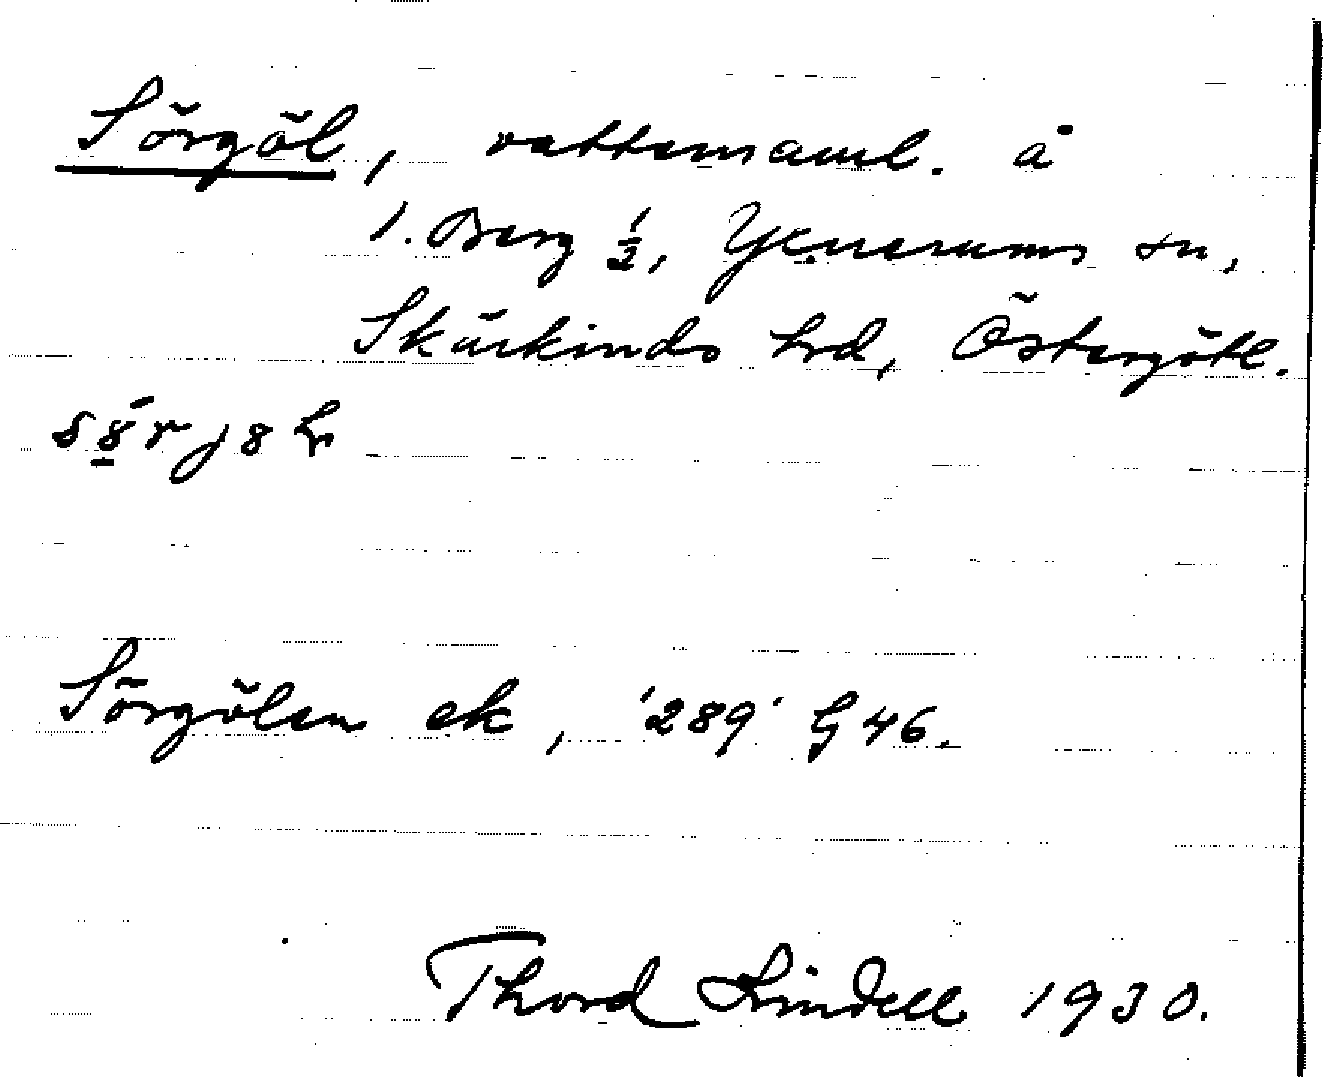 Sörgöl, vattensaml. å
1. Berg ½, Yxnerums sn,
Skärkinds hrd, Östergötl.
Sörgölen ek, '289' G 46.
Thord Lindell 1930.